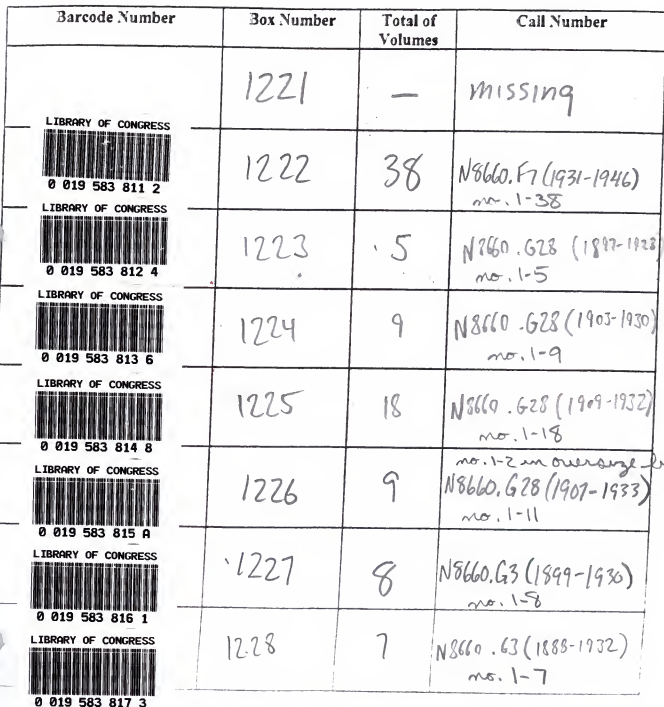 Barcode Number Box Number Total of Volumes Call Number
1221 — missing
LIBRARY OF CONGRESS
0 019 583 811 2
1222 38 N8660.F7 (1931-1946)
no. 1-38
LIBRARY OF CONGRESS
0 019 583 812 4
1223 5 N8660.G28 (1897-1928)
no. 1-5
LIBRARY OF CONGRESS
0 019 583 813 6
1224 9 N8660.G28 (1903-1930)
no. 1-9
LIBRARY OF CONGRESS
0 019 583 814 8
1225 18 N8660.G28 (1909-1932)
no. 1-18
LIBRARY OF CONGRESS
0 019 583 815 A
no. 1-2 in oversize
1226 9 N8660.G28 (1907-1933)
no. 1-11
LIBRARY OF CONGRESS
0 019 583 816 1
1227 8 N8660.G3 (1899-1930)
no. 1-8
LIBRARY OF CONGRESS
0 019 583 817 3
1228 7 N8660.G3 (1888-1932)
no. 1-7